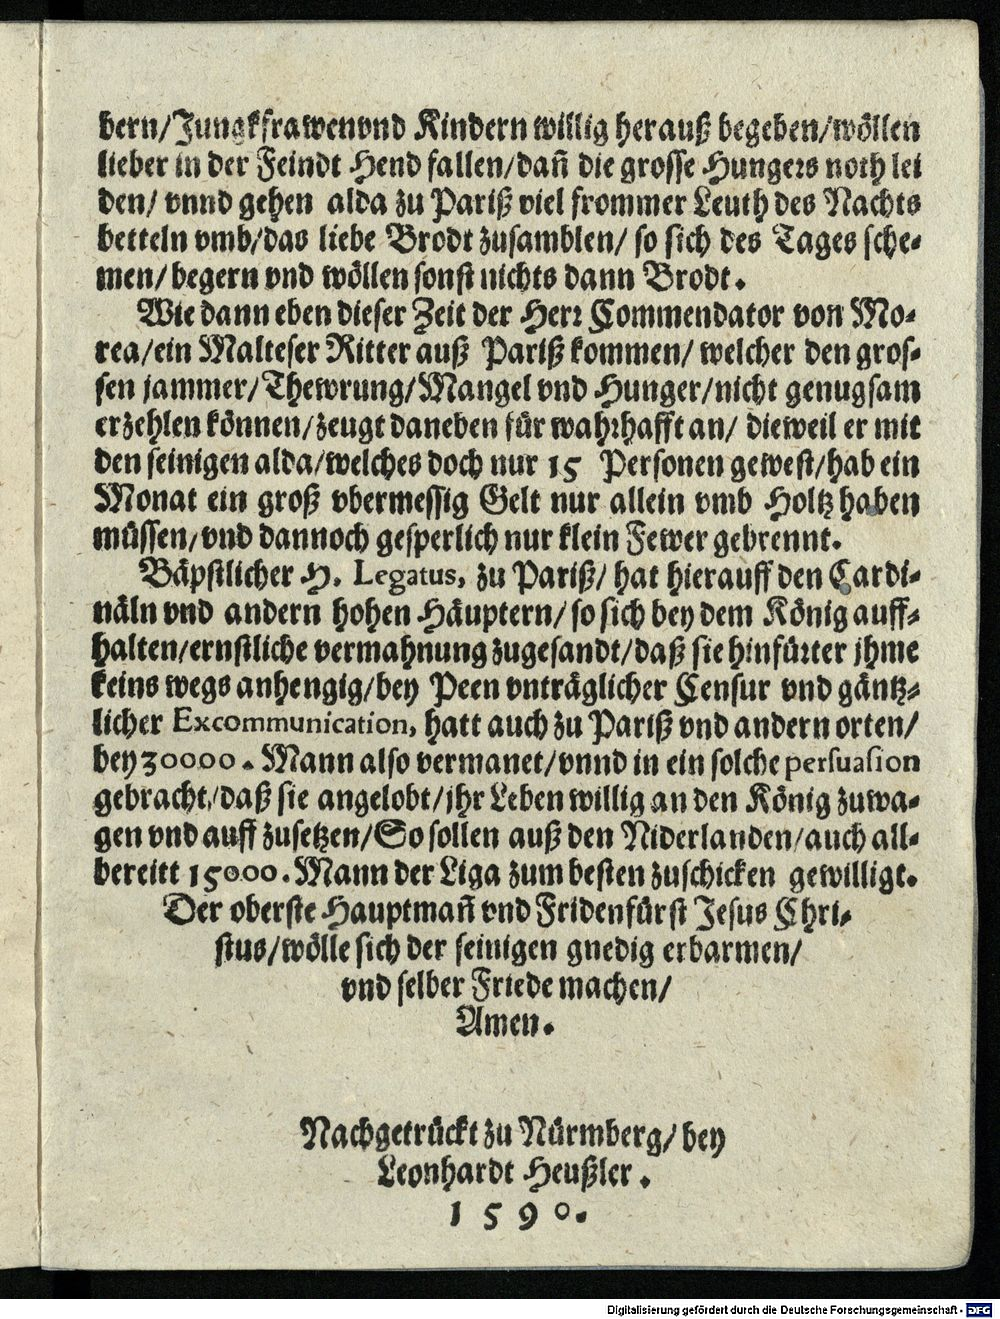 bern/Jungkfrawen vnd Kindern willig herauß begeben/wöllen
lieber in der Feindt Hend fallen/dañ die grosse Hungers noth lei
den/ vnnd gehen alda zu Pariß viel frommer Leuth des Nachts
betteln vmb/das liebe Brodt zusamblen/ so sich des Tages sche-
men/ begern vnd wöllen sonst nichts dann Brodt.
Wie dann eben dieser Zeit der Herr Commendator von Mo-
rea/ein Malteser Ritter auß Pariß kommen/ welcher den gros-
sen jammer/Thewrung/Mangel vnd Hunger/nicht genugsam
erzehlen können/zeugt daneben für wahrhafft an/ dieweil er mit
den seinigen alda/welches doch nur 15 Personen gewest/hab ein
Monat ein groß vbermessig Gelt nur allein vmb Holtz haben
müssen/vnd dannoch gesperlich nur klein Fewer gebrennt.
Bäpstlicher H. Legatus, zu Pariß/ hat hierauff den Cardi-
näln vnd andern hohen Häuptern/ so sich bey dem König auff-
halten/ernstliche vermahnung zugesandt/daß sie hinfürter jhme
keins wegs anhengig/bey Peen vnträglicher Censur vnd gäntz-
licher Excommunication, hatt auch zu Pariß vnd andern orten/
bey 30000. Mann also vermanet/vnnd in ein solche persuasion
gebracht/daß sie angelobt/jhr Leben willig an den König zuwa-
gen vnd auff zusetzen/So sollen auß den Niderlanden/auch all-
bereitt 15000. Mann der Liga zum besten zuschicken gewilligt.
Der oberste Hauptmañ vnd Fridenfürst Jesus Chri-
stus/wölle sich der seinigen gnedig erbarmen/
vnd selber Friede machen/
Amen.
Nachgetrückt zu Nürmberg/ bey
Leonhardt Heußler.
1590.
Digitalisierung gefördert durch die Deutsche Forschungsgemeinschaft - DFG